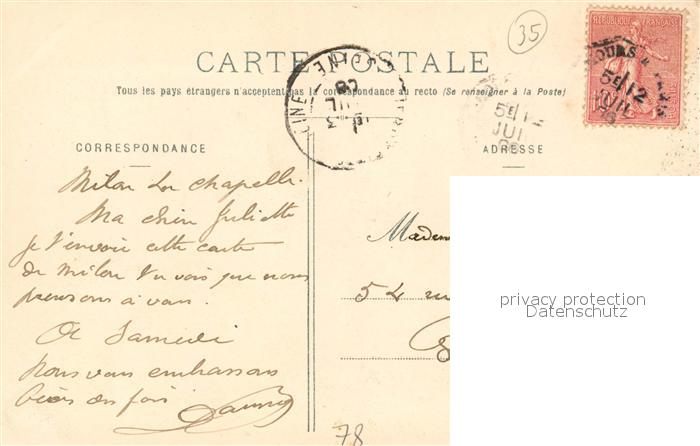 35
RÉPUBLIQUE FRANÇAISE
CARTE POSTALE
Tous les pays étrangers n'acceptent pas la correspondance au recto (Se renseigner à la Poste)
CORRESPONDANCE
ADRESSE
Milon La Chapelle
Ma chère Juliette
je t'envoie cette carte
de Milon tu vois que nous
pensons à vous.
A Samedi
Nous vous embrassons
bien des fois
Madem
54 ru
privacy protection
Datenschutz
78